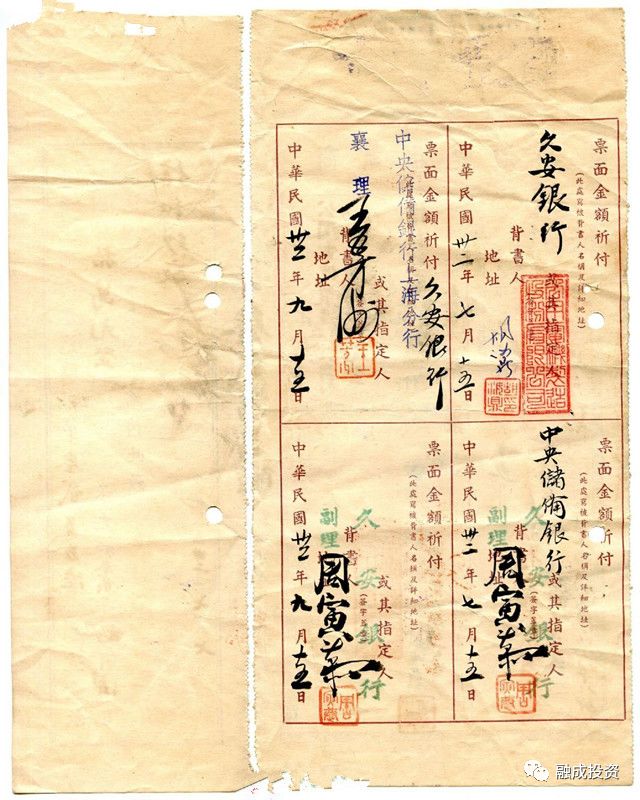 票面金額祈付
(此處寫被背書人名稱及詳細地址)
久安銀行
或其指定人
背書人
地址
中華民國卅二年七月十五日
票面金額祈付
久安銀行
或其指定人
中央儲備銀行上海分行
襄理
背書人
地址
中華民國卅二年九月十五日
票面金額祈付
(此處寫被背書人名稱及詳細地址)
中央儲備銀行
或其指定人
(簽字蓋章)
久安銀行
背書人
副理
周寅
地址
中華民國卅二年七月十五日
票面金額祈付
(此處寫被背書人名稱及詳細地址)
或其指定人
(簽字蓋章)
久安銀行
背書人
副理
周寅
地址
中華民國卅二年九月十五日
融成投资